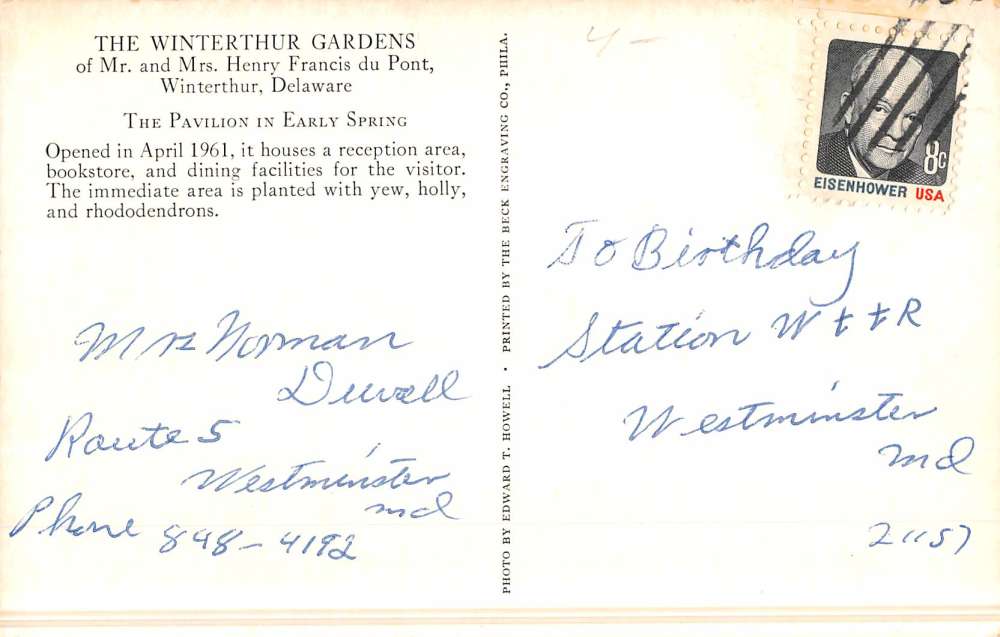 THE WINTERTHUR GARDENS
of Mr. and Mrs. Henry Francis du Pont,
Winterthur, Delaware
THE PAVILION IN EARLY SPRING
Opened in April 1961, it houses a reception area,
bookstore, and dining facilities for the visitor.
The immediate area is planted with yew, holly,
and rhododendrons.
Mrs Norman
Duvall
Route 5
Westminster
md
Phone 848-4192
PHOTO BY EDWARD T. HOWELL · PRINTED BY THE BECK ENGRAVING CO., PHILA.
8c
EISENHOWER USA
To Birthday
Station W t t R
Westminster
md
21157